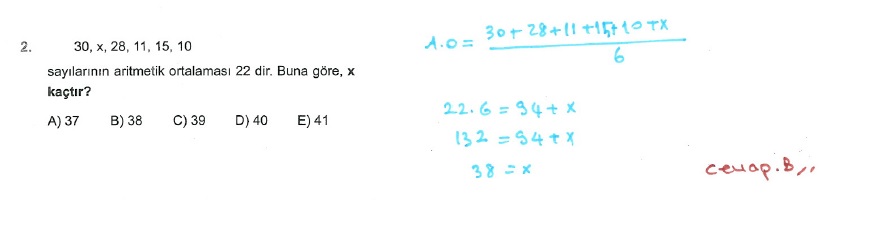 2. 30, x, 28, 11, 15, 10
sayılarının aritmetik ortalaması 22 dir. Buna göre, x
kaçtır?
A) 37 B) 38 C) 39 D) 40 E) 41
A.O = 30+28+11+15+10+x
6
22.6 = 94+x
132 = 94+x
38 = x
cevap.B,,